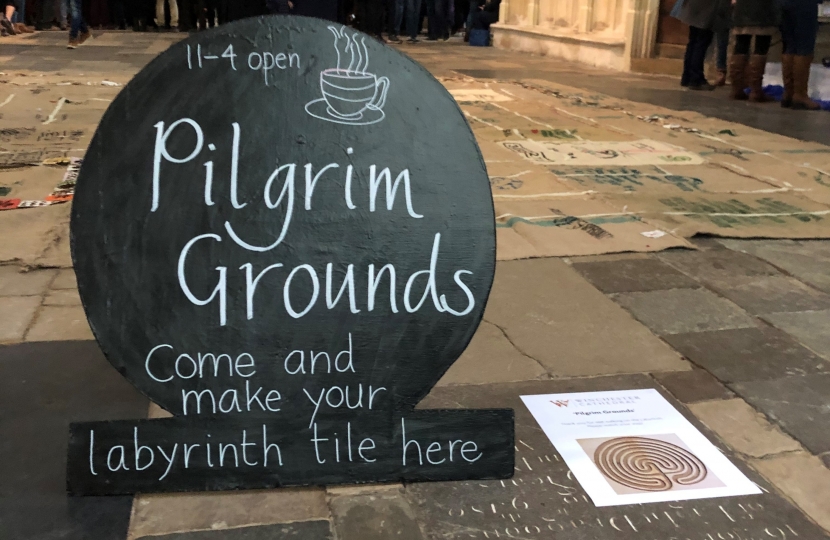 11-4 open
Pilgrim
Grounds
Come and
make your
labyrinth tile here
WINCHESTER
CATHEDRAL
Pilgrim Grounds